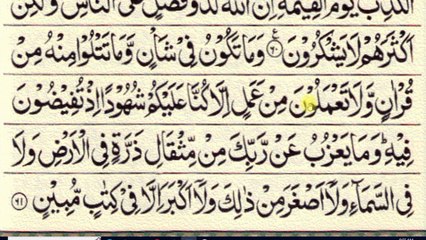 الْكَذِبَ يَوْمَ الْقِيٰمَةِ اِنَّ اللّٰهَ لَذُوْ فَضْلٍ عَلَى النَّاسِ وَلٰكِنَّ
اَكْثَرَهُمْ لَا يَشْكُرُوْنَ ۝٦٠ وَمَا تَكُوْنُ فِيْ شَاْنٍ وَّمَا تَتْلُوْا مِنْهُ مِنْ
قُرْاٰنٍ وَّلَا تَعْمَلُوْنَ مِنْ عَمَلٍ اِلَّا كُنَّا عَلَيْكُمْ شُهُوْدًا اِذْ تُفِيْضُوْنَ
فِيْهِ ؕ وَمَا يَعْزُبُ عَنْ رَّبِّكَ مِنْ مِّثْقَالِ ذَرَّةٍ فِي الْاَرْضِ وَلَا
فِي السَّمَآءِ وَلَاۤ اَصْغَرَ مِنْ ذٰلِكَ وَلَاۤ اَكْبَرَ اِلَّا فِيْ كِتٰبٍ مُّبِيْنٍ ۝٦١